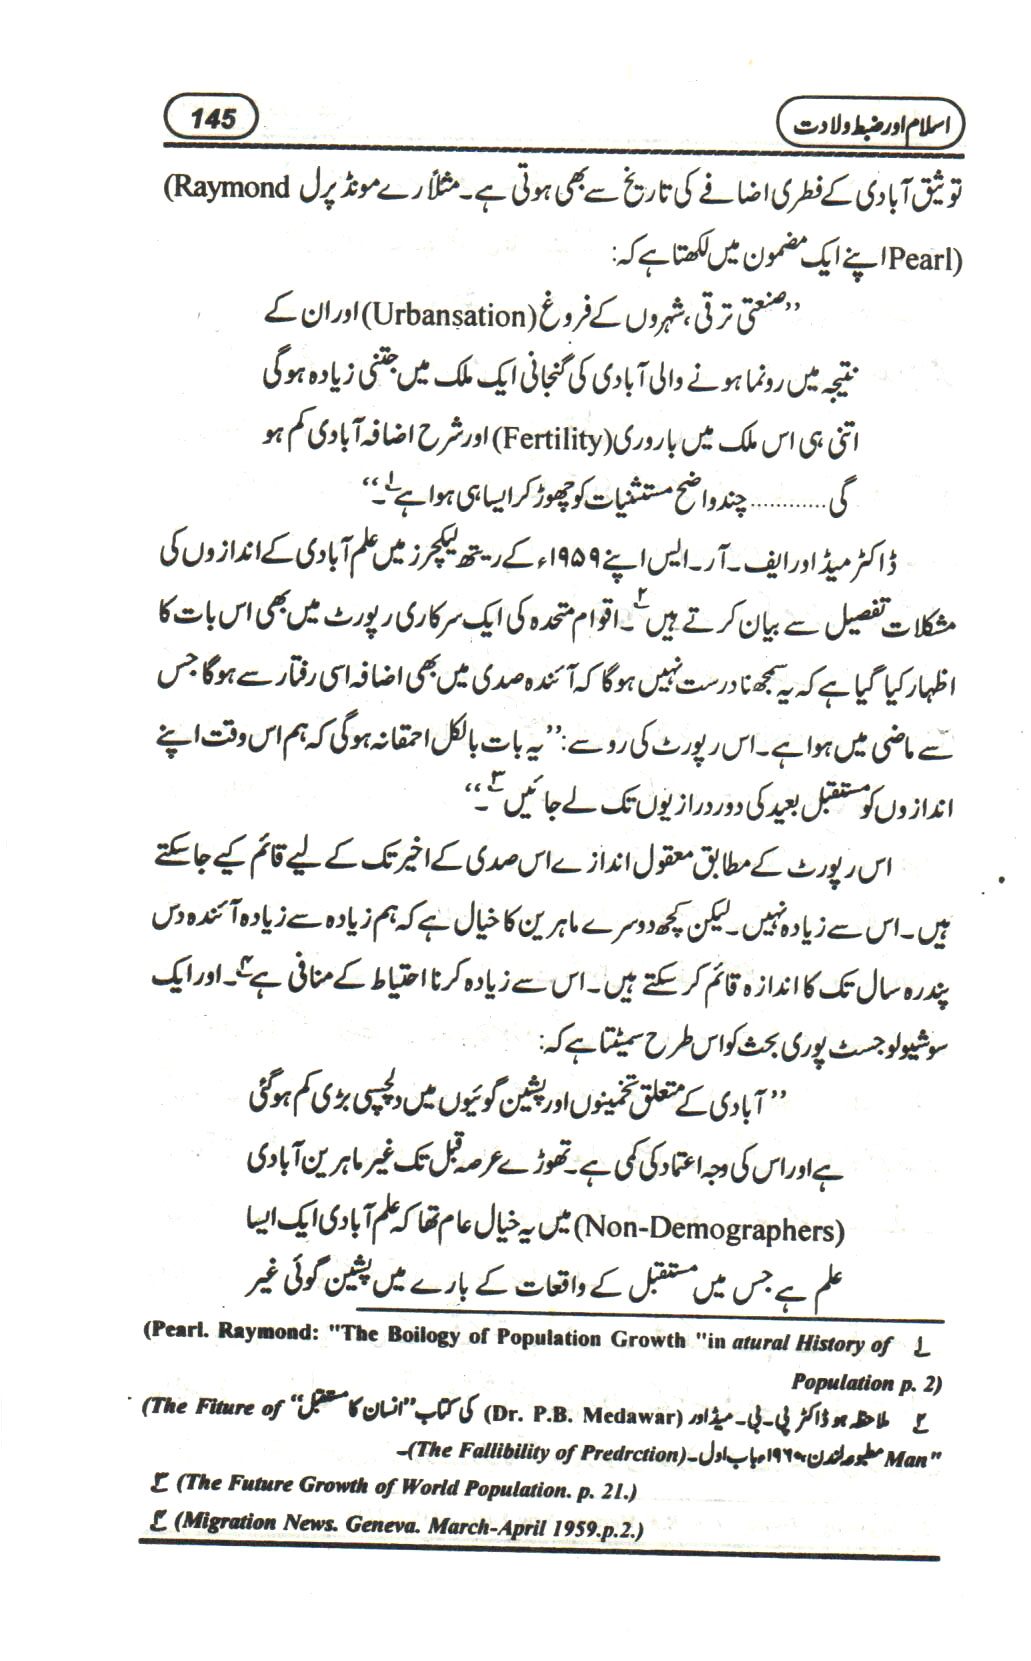 اسلام اور ضبط ولادت
145
توثیق آبادی کے فطری اضافے کی تاریخ سے بھی ہوتی ہے۔ مثلاً رے مونڈ پرل (Raymond
Pearl) اپنے ایک مضمون میں لکھتا ہے کہ:
”صنعتی ترقی، شہروں کے فروغ (Urbansation) اور ان کے
نتیجہ میں رونما ہونے والی آبادی کی گنجانی ایک ملک میں جتنی زیادہ ہوگی
اتنی ہی اس ملک میں باروری (Fertility) اور شرح اضافہ آبادی کم ہو
گی ............ چند واضح مستثنیات کو چھوڑ کر ایسا ہی ہوا ہے۱۔“
ڈاکٹر میڈاور ایف۔ آر۔ ایس اپنے ۱۹۵۹ء کے ریتھ لیکچرز میں علم آبادی کے اندازوں کی
مشکلات تفصیل سے بیان کرتے ہیں۲۔ اقوام متحدہ کی ایک سرکاری رپورٹ میں بھی اس بات کا
اظہار کیا گیا ہے کہ یہ سمجھنا درست نہیں ہوگا کہ آئندہ صدی میں بھی اضافہ اسی رفتار سے ہوگا جس
سے ماضی میں ہوا ہے۔ اس رپورٹ کی رو سے: ”یہ بات بالکل احمقانہ ہوگی کہ ہم اس وقت اپنے
اندازوں کو مستقبل بعید کی دور درازیوں تک لے جائیں۳۔“
اس رپورٹ کے مطابق معقول اندازے اس صدی کے اخیر تک کے لیے قائم کیے جا سکتے
ہیں۔ اس سے زیادہ نہیں۔ لیکن کچھ دوسرے ماہرین کا خیال ہے کہ ہم زیادہ سے زیادہ آئندہ دس
پندرہ سال تک کا اندازہ قائم کر سکتے ہیں۔ اس سے زیادہ کرنا احتیاط کے منافی ہے۴۔ اور ایک
سوشیولوجسٹ پوری بحث کو اس طرح سمیٹتا ہے کہ:
”آبادی کے متعلق تخمینوں اور پشین گوئیوں میں دلچسپی بڑی کم ہوگئی
ہے اور اس کی وجہ اعتماد کی کمی ہے۔ تھوڑے عرصہ قبل تک غیر ماہرین آبادی
(Non-Demographers) میں یہ خیال عام تھا کہ علم آبادی ایک ایسا
علم ہے جس میں مستقبل کے واقعات کے بارے میں پشین گوئی غیر
۱ (Pearl. Raymond: "The Boilogy of Population Growth "in atural History of
Population p. 2)
۲ ملاحظہ ہو ڈاکٹر پی۔ بی۔ میڈاور (Dr. P.B. Medawar) کی کتاب ”انسان کا مستقبل“ (The Fiture of
Man" مطبوعہ لندن، ۱۹۶۰ء باب اول۔ (The Fallibility of Predrction)۔
۳ (The Future Growth of World Population. p. 21.)
۴ (Migration News. Geneva. March-April 1959.p.2.)